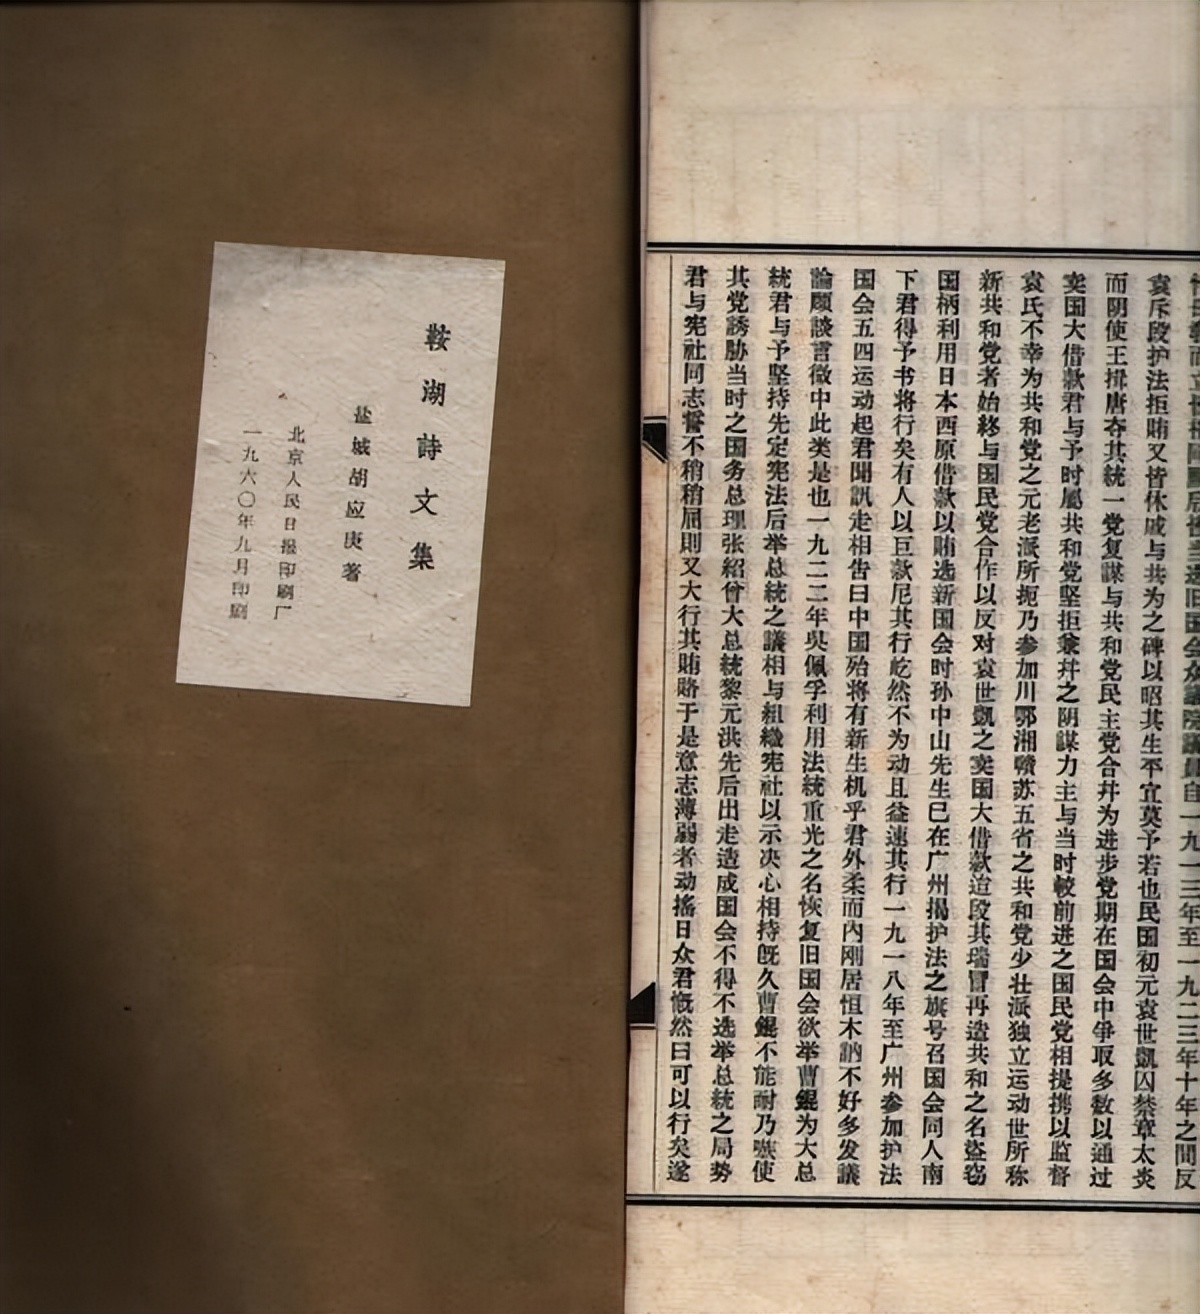 鞍湖詩文集
盐城胡应庚著
北京人民日报印刷厂
一九六〇年九月印刷
主选旧国会众議院議員自一九一三年至一九二三年十年之間反
袁斥段护法拒賄又皆休戚与共为之碑以昭其生平宜莫予若也民国初元袁世凱囚禁章太炎
而阴使王揖唐夺其統一党复謀与共和党民主党合幷为进步党期在国会中爭取多数以通过
卖国大借款君与予时屬共和党坚拒兼幷之阴謀力主与当时較前进之国民党相提携以监督
袁氏不幸为共和党之元老派所扼乃参加川鄂湘赣苏五省之共和党少壮派独立运动世所称
新共和党者始終与国民党合作以反对袁世凱之卖国大借款迨段其瑞冒再造共和之名盜窃
国柄利用日本西原借款以賄选新国会时孙中山先生已在广州揭护法之旗号召国会同人南
下君得予书将行矣有人以巨款尼其行屹然不为动且益速其行一九一八年至广州参加护法
国会五四运动起君聞訊走相告曰中国殆将有新生机乎君外柔而內刚居恒木訥不好多发議
論顾談言微中此类是也一九二二年吳佩孚利用法統重光之名恢复旧国会欲举曹錕为大总
統君与予坚持先定宪法后举总統之議相与組織宪社以示决心相持旣久曹錕不能耐乃嗾使
其党誘胁当时之国务总理张紹曾大总統黎元洪先后出走造成国会不得不选举总統之局势
君与宪社同志誓不稍稍屈則又大行其賄賂于是意志薄弱者动搖日众君慨然曰可以行矣遂